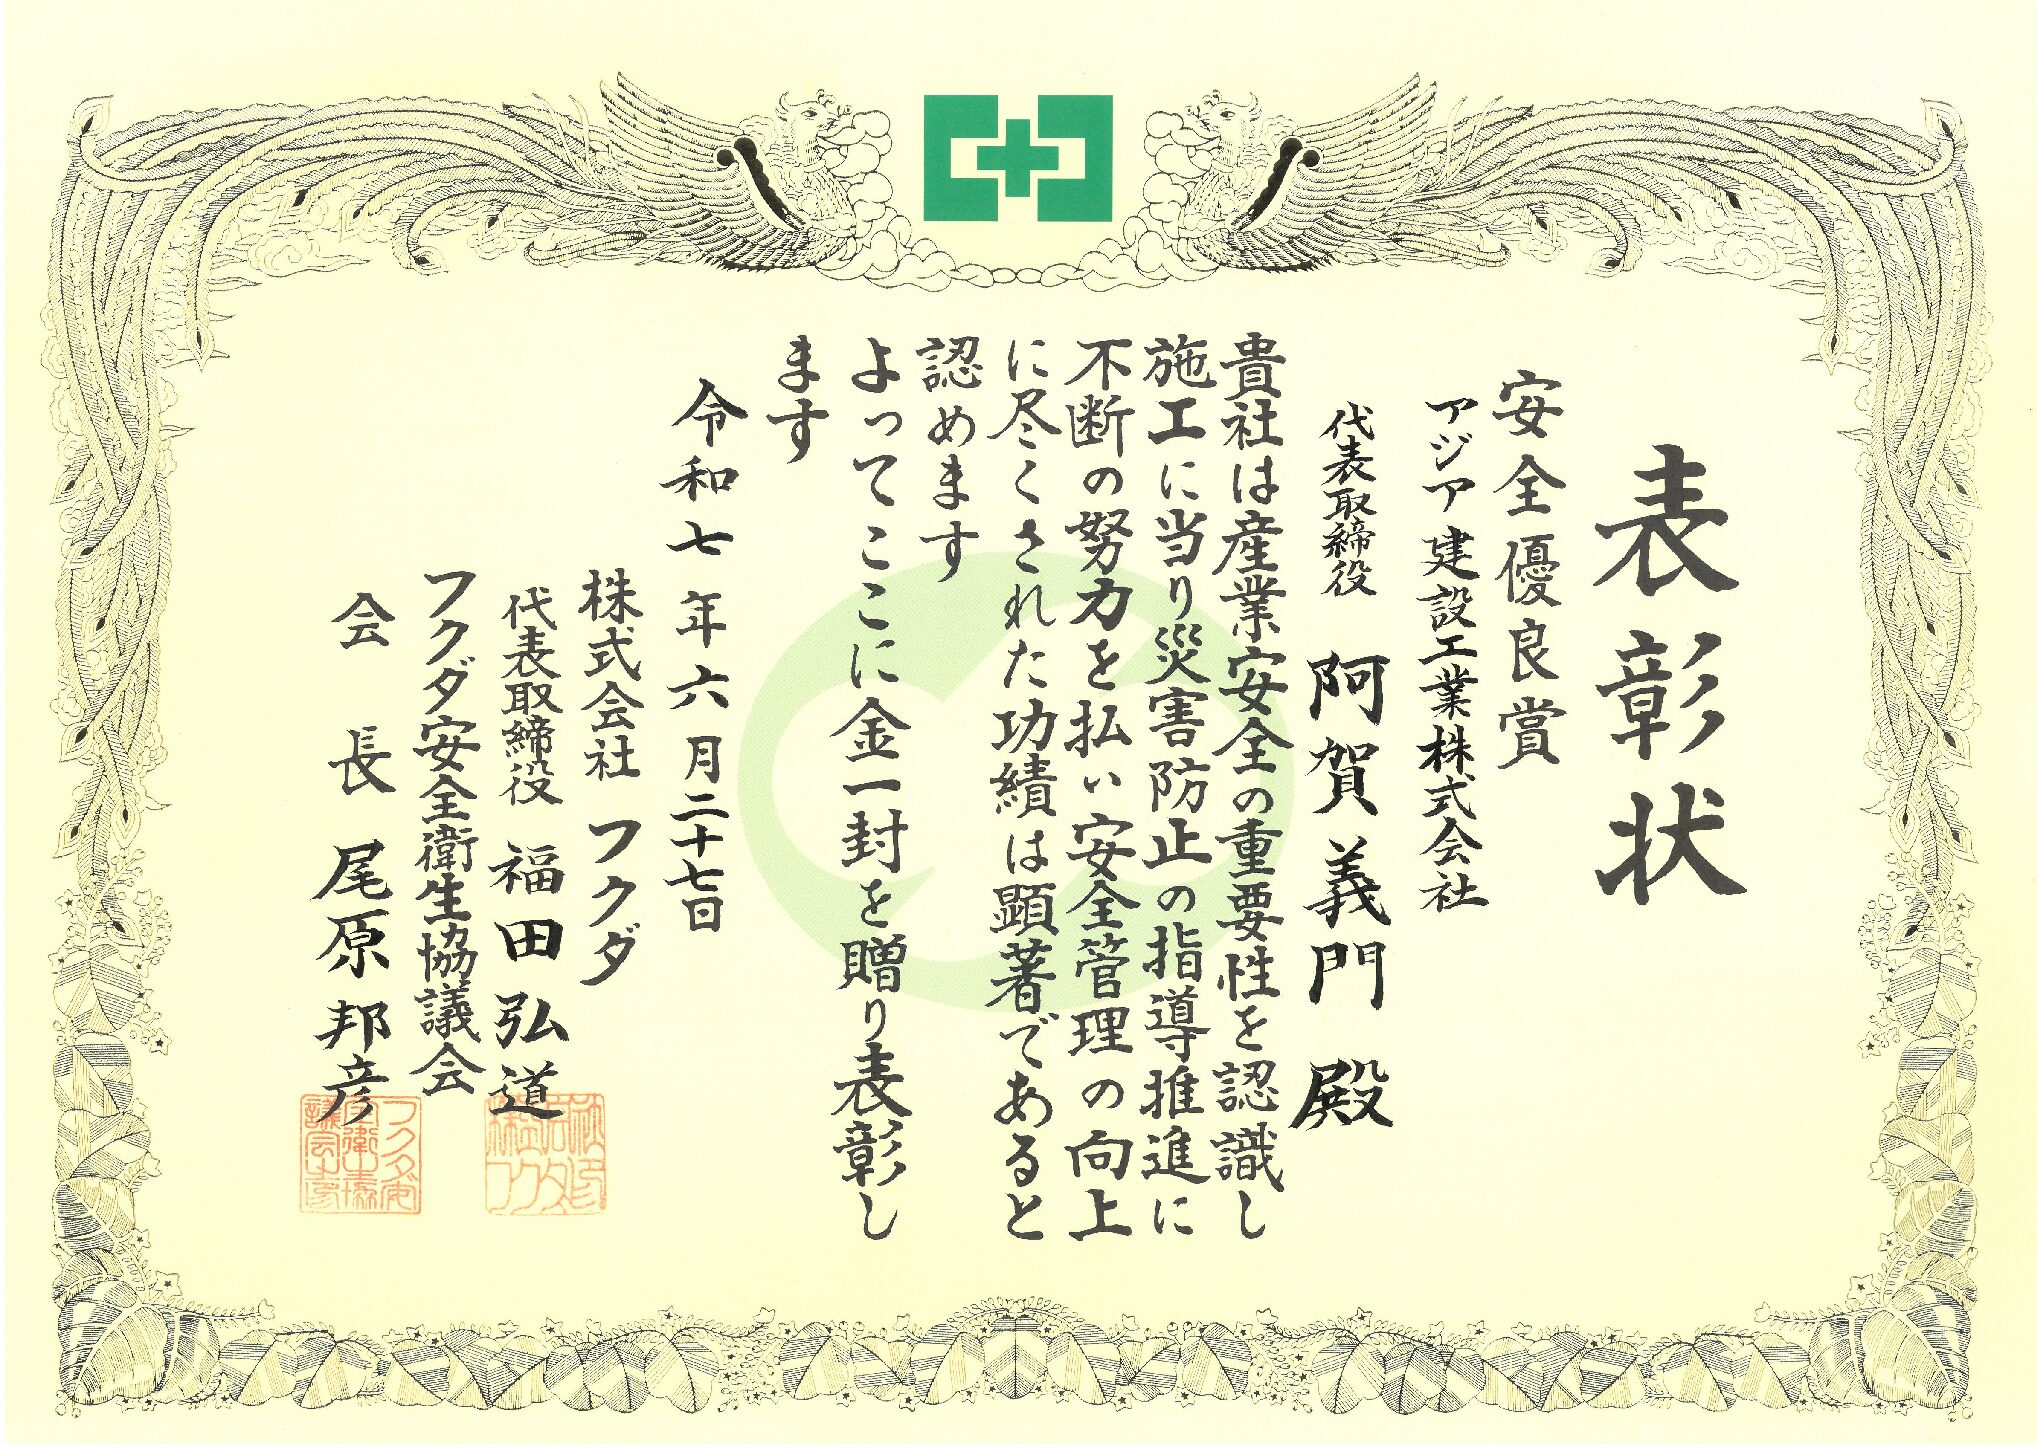 表彰状
安全優良賞
アジア建設工業株式会社
代表取締役 阿賀義門 殿
貴社は産業安全の重要性を認識し
施工に当り災害防止の指導推進に
不断の努力を払い安全管理の向上
に尽くされた功績は顕著であると
認めます
よってここに金一封を贈り表彰し
ます
令和七年六月二十七日
株式会社フクダ
代表取締役 福田弘道
フクダ安全衛生協議会
会長 尾原邦彦